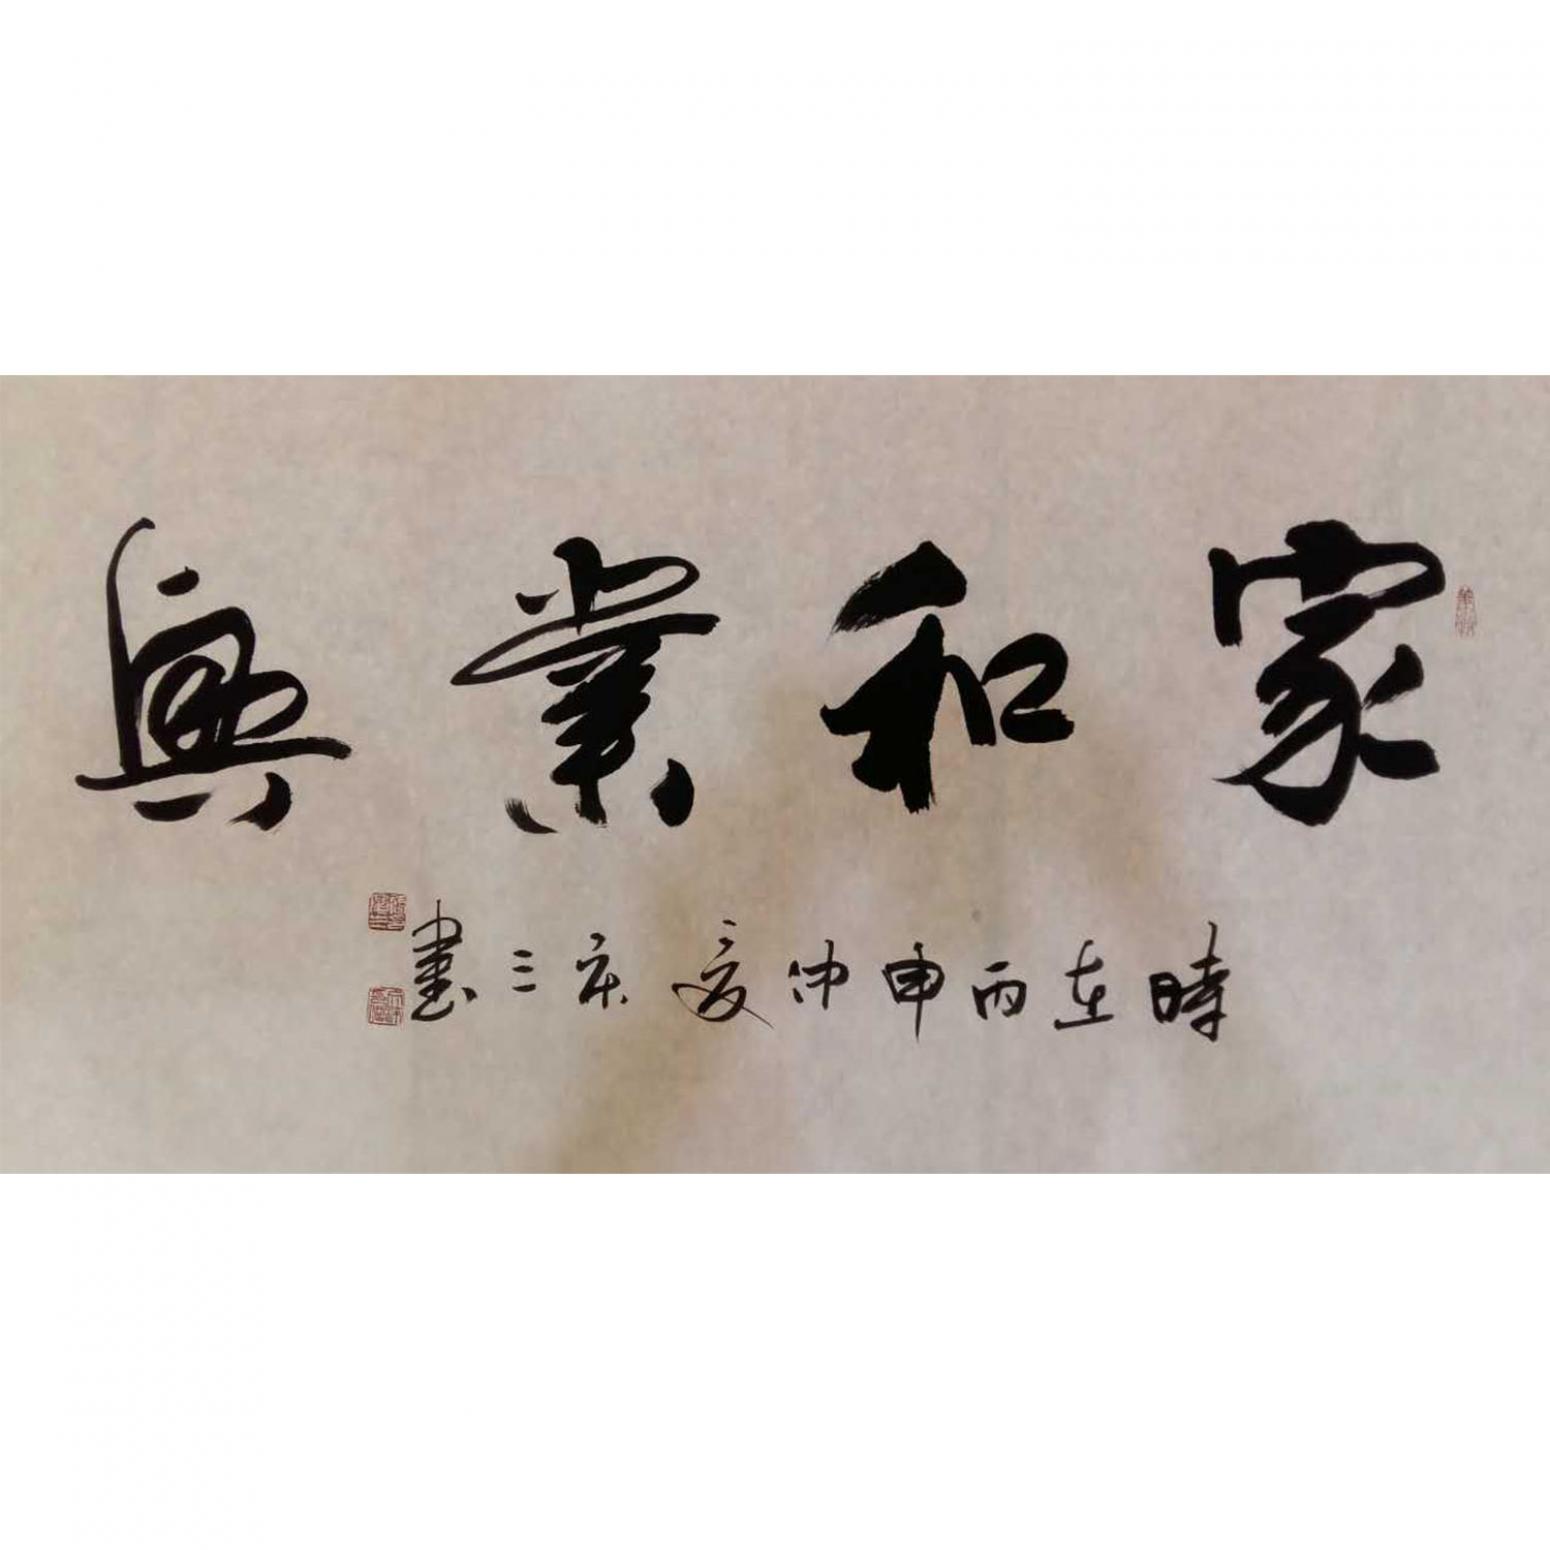 家和業興
時在丙申仲夏庆三書